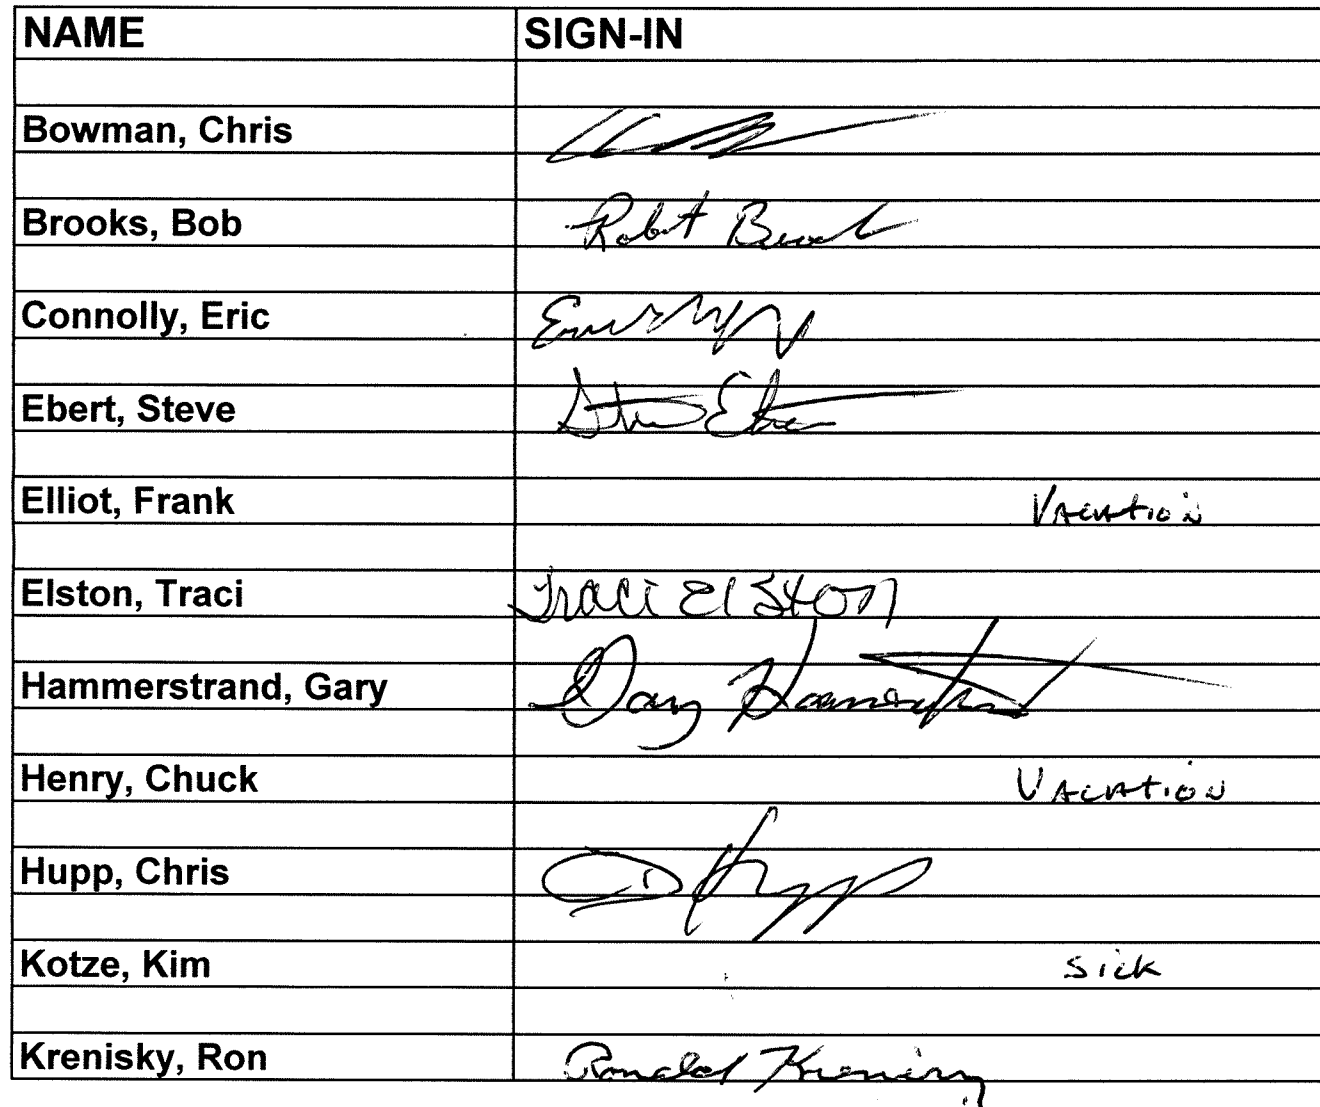 NAME SIGN-IN
Bowman, Chris
Brooks, Bob Robert
Connolly, Eric
Ebert, Steve Steve Ebert
Elliot, Frank Vacation
Elston, Traci Traci Elston
Hammerstrand, Gary Gary Hammerstrand
Henry, Chuck Vacation
Hupp, Chris Hupp
Kotze, Kim Sick
Krenisky, Ron Ronald Krenisky